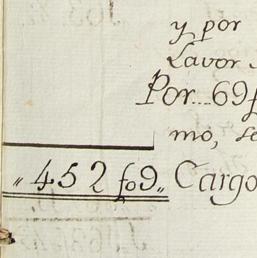 y por
Lavor
Por... 69
mo, se
„ 452 fo9„ Cargo